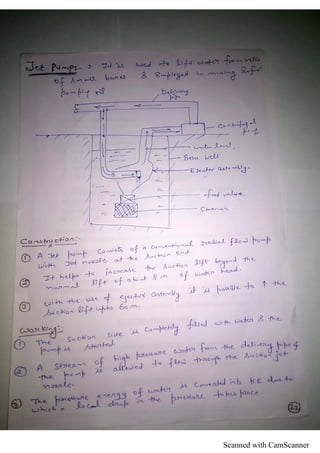 Jet Pumps : It is used to lift water from wells
of small bores & Employed in mining & for
pumping oil
Delivery
pipe
Centrifugal
pump
water level.
Bore well
Ejector assembly.
foot valve.
Strainer
Construction:-
① A Jet pump consists of a conventional radial flow pump
with Jet nozzle at the Suction end
② It helps to increase the Suction lift beyond the
normal lift of about 8 m of water head.
③ with the use of ejector assembly it is possible to ↑ the
Suction lift upto 60 m.
Working:
① The Suction side is completely filled with water & the
pump is started.
② A Stream of high pressure water from the delivery pipe of
the pump is allowed to flow through the Suction jet
nozzle.
③ The pressure energy of water is converted into KE due to
which a local drop in the pressure takes place.
Scanned with CamScanner